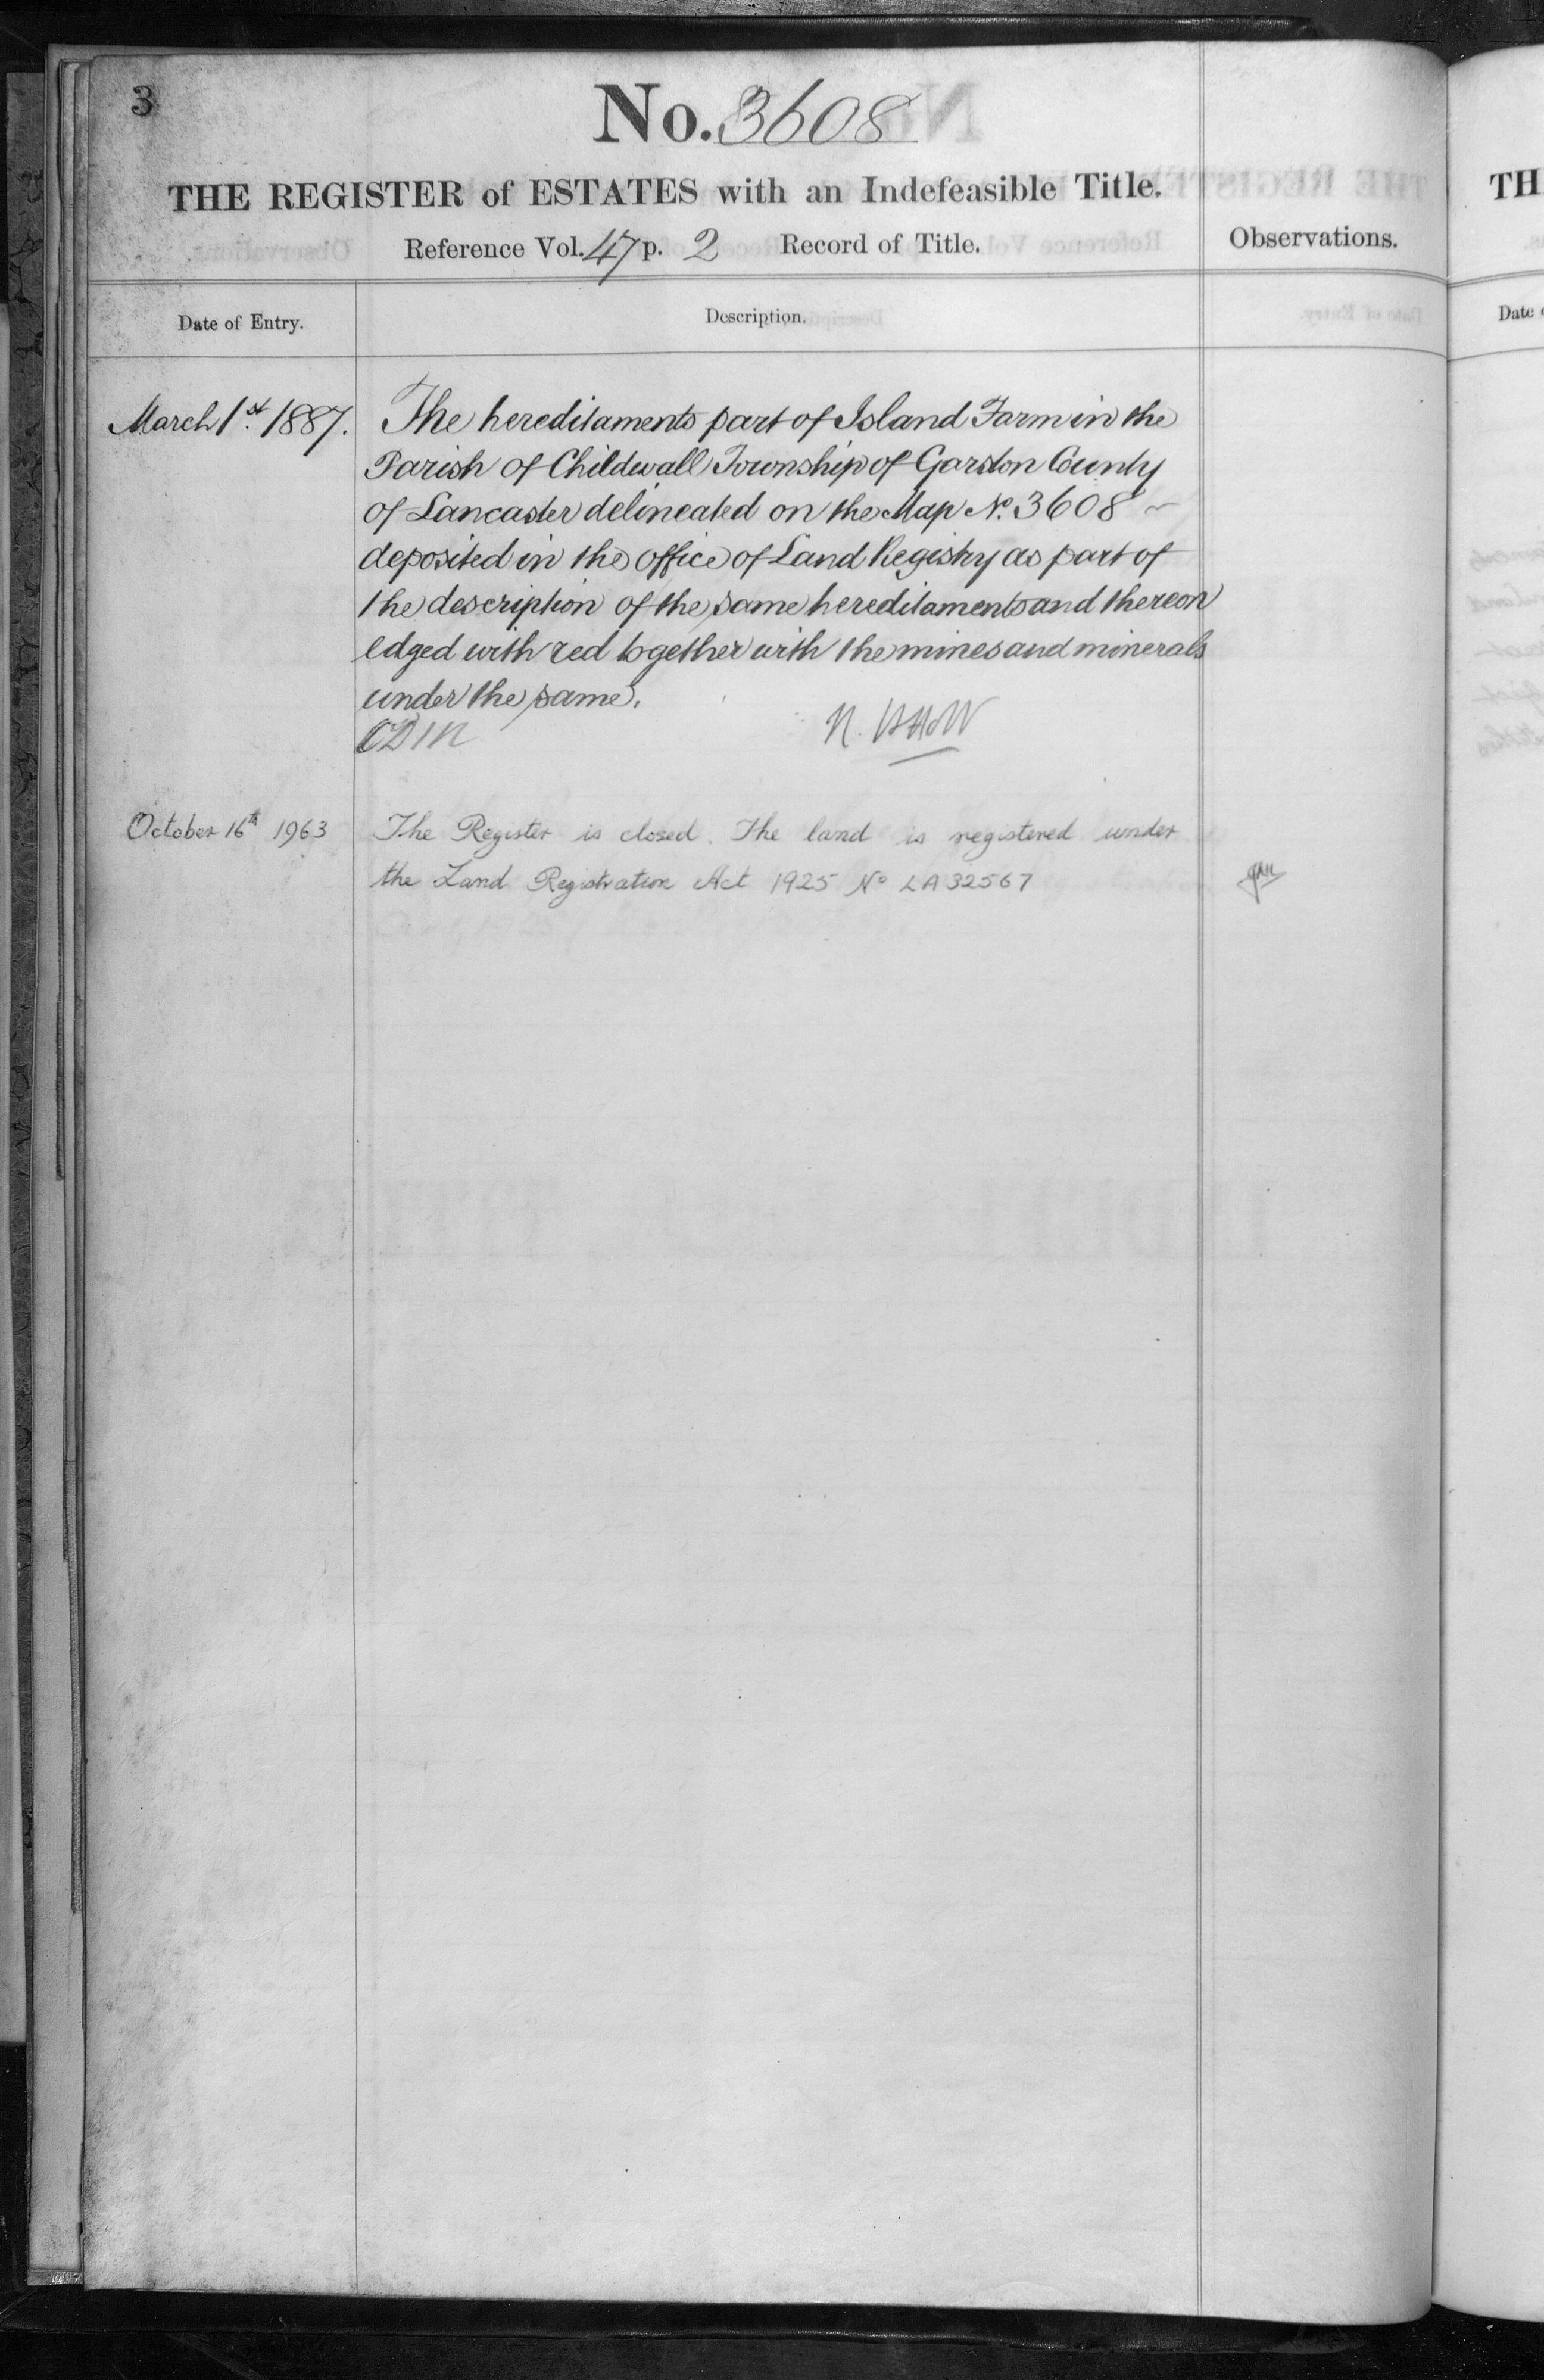 3
No. 3608
THE REGISTER of ESTATES with an Indefeasible Title.
Reference Vol. 47 p. 2 Record of Title.
Observations.
Date of Entry.
Description.
March 1st. 1887.
The hereditaments part of Island Farm in the
Parish of Childwall Township of Garston County
of Lancaster delineated on the Map No. 3608 ~
deposited in the office of Land Registry as part of
the description of the same hereditaments and thereon
edged with red together with the mines and minerals
under the same.
October 16th 1963
The Register is closed. The land is registered under
the Land Registration Act 1925 No LA32567
TH
Date